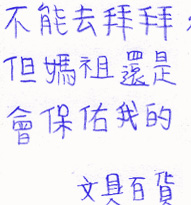 不能去拜拜
但媽祖還是
會保佑我的
文具百貨